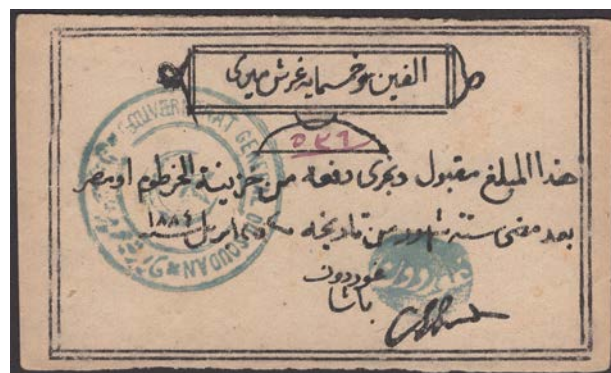 الفين وخمسماية غرش ميرى
هذا المبلغ مقبول ويجرى دفعه من خزينة الخرطوم او مصر
بعد مضى ستة شهور من تاريخه ٢٥ ابريل سنة ١٨٨٤
غوردون
باشا
GOUVERNORAT GENERAL DU SOUDAN